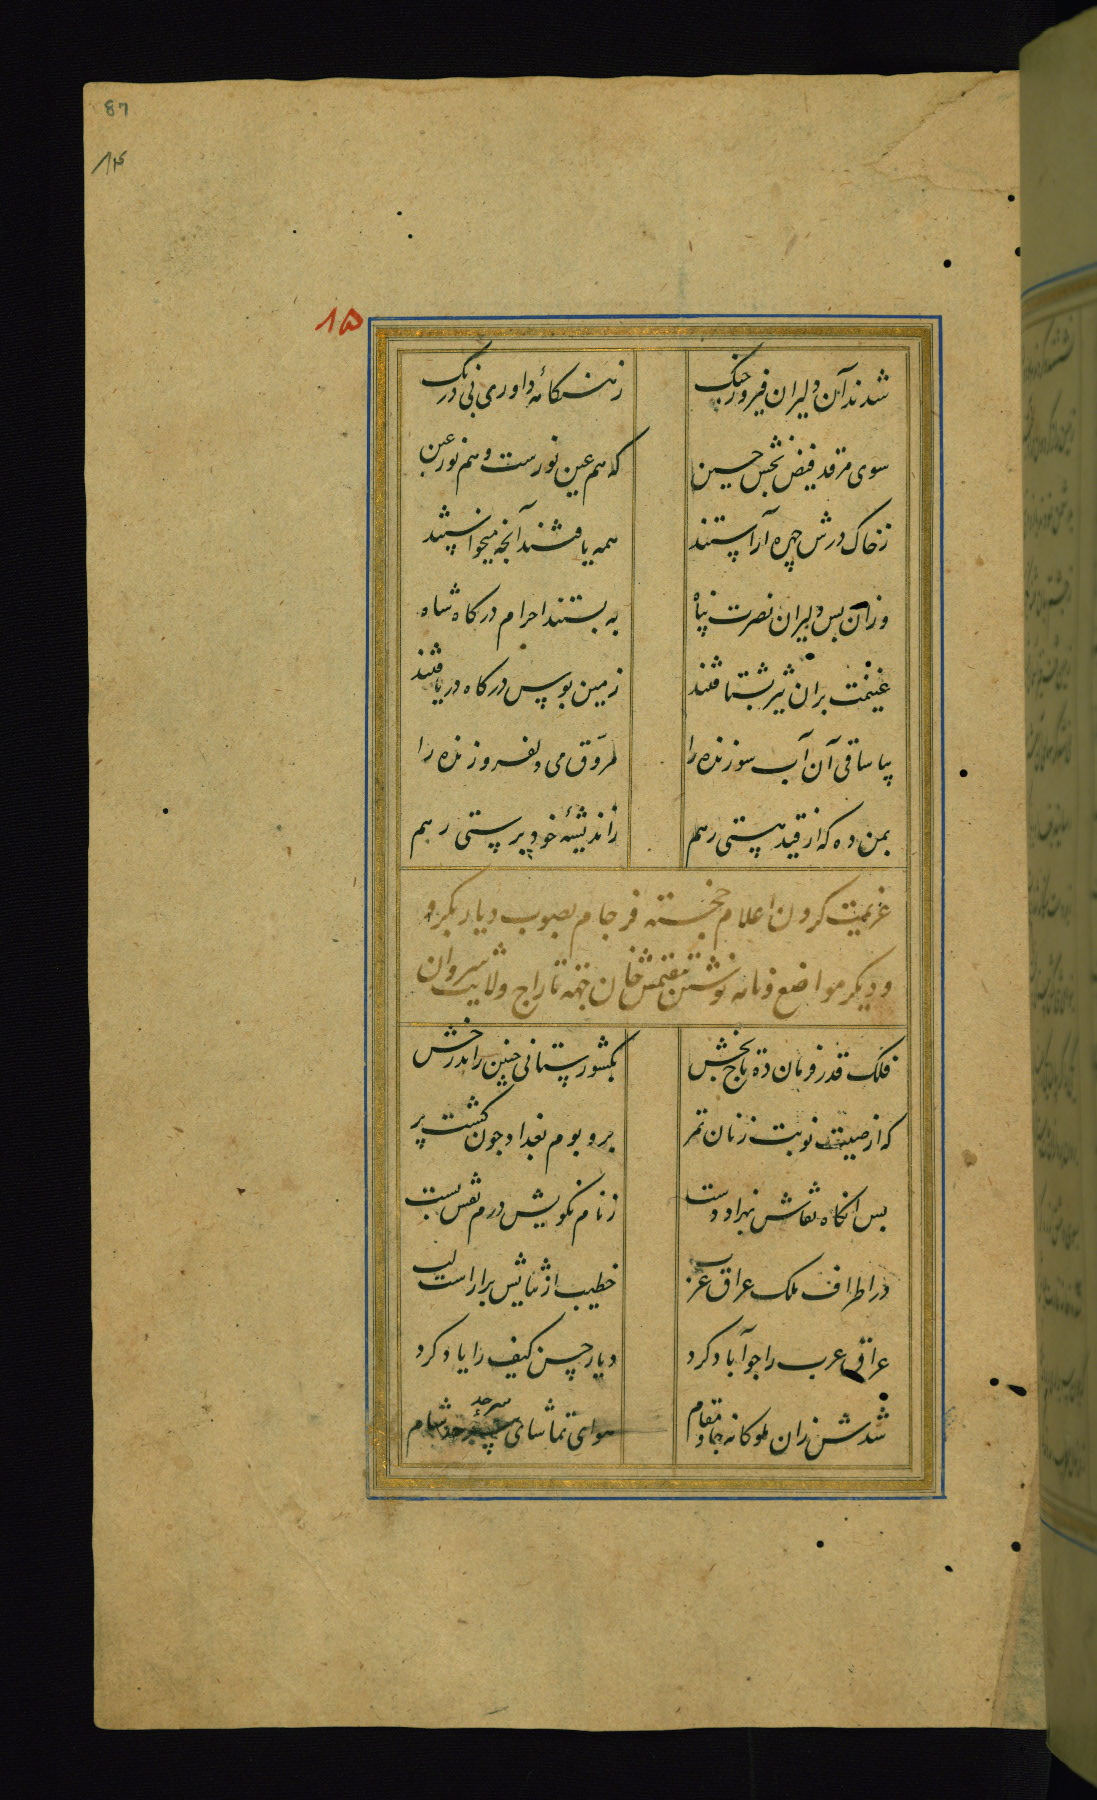 87
۸۴
۸۵
شدند آن دلیران فیروز جنک
ز هنکامهٔ داوری بی درنک
سوی مرقد فیض بخش حسین
که هم عین نورست و هم نور عین
ز خاک درش چهره آراستند
همه یافتند آنچه میخواستند
وزان پس دلیران نصرت پناه
به بستند احرام درکاه شاه
غنیمت بران شیر بشتافتند
زمین بوس درکاه دریافتند
بیا ساقی آن آب سوزنده را
مروق می دلفروزنده را
بمن ده که از قید هستی رهم
ز اندیشهٔ خود پرستی رهم
عزیمت کردن اعلام خجسته فرجام بصوب دیار بکر و
و دیکر مواضع و نامه نوشتن تقتمش خان جهة تاراج ولایت شروان
فلک قدر فرمان ده تاج بخش
بکشور ستانی چنین راند رخش
که از صیت نوبت زنان تمر
بر و بوم بغداد چون کشت پر
پس آنکاه نقاش بهزاد دست
ز نام نکویش درم نقش بست
در اطراف ملک عراق عرب
خطیب از ثنایش براراست لب
عراق عرب را چو آباد کرد
دیار حسن کیف را یاد کرد
شدش زان ملوکانه جا و مقام
هوای تماشای سرحد شام